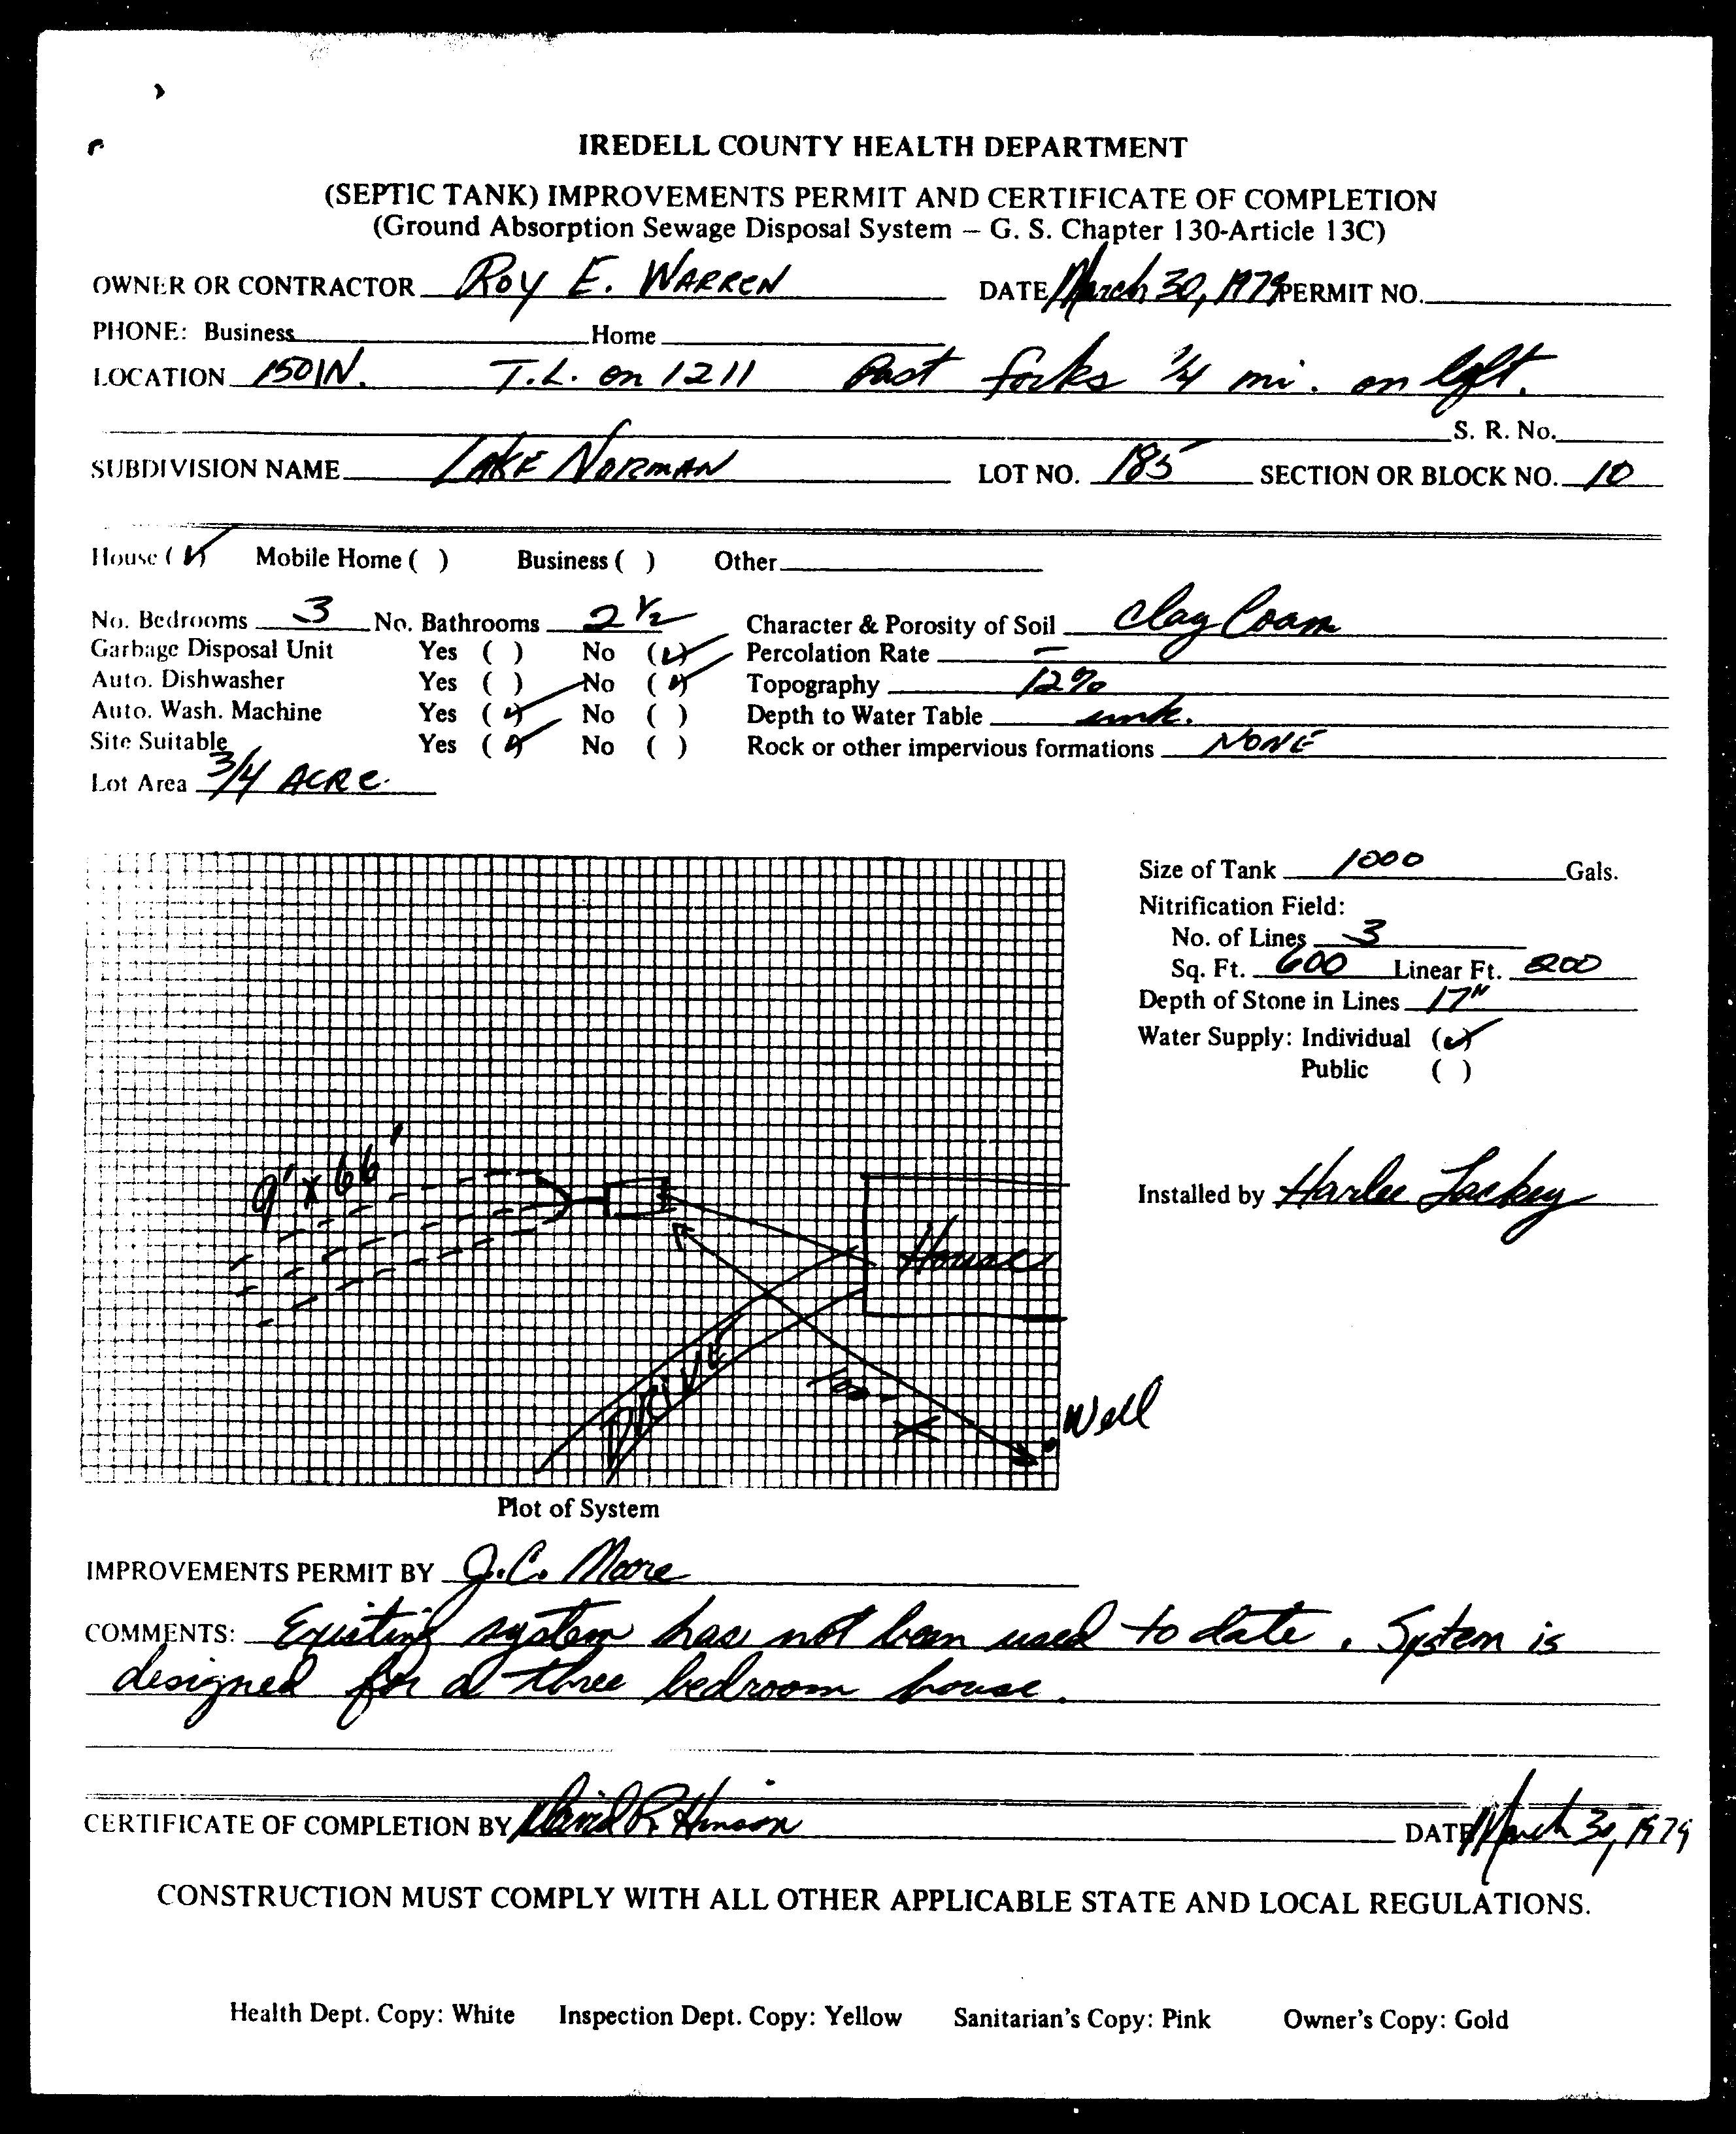 IREDELL COUNTY HEALTH DEPARTMENT
(SEPTIC TANK) IMPROVEMENTS PERMIT AND CERTIFICATE OF COMPLETION
(Ground Absorption Sewage Disposal System – G. S. Chapter 130-Article 13C)
OWNER OR CONTRACTOR Roy E. Warren DATE March 30, 1979 PERMIT NO.
PHONE: Business Home
LOCATION 150 N. T.L. on 1211 Past forks 1/4 mi. on left.
S. R. No.
SUBDIVISION NAME Lake Norman LOT NO. 185 SECTION OR BLOCK NO. 10
House (✓) Mobile Home ( ) Business ( ) Other
No. Bedrooms 3 No. Bathrooms 2 1/2 Character & Porosity of Soil Clay Loam
Garbage Disposal Unit Yes ( ) No (✓) Percolation Rate –
Auto. Dishwasher Yes ( ) No (✓) Topography 12%
Auto. Wash. Machine Yes (✓) No ( ) Depth to Water Table unk.
Site Suitable Yes (✓) No ( ) Rock or other impervious formations NONE
Lot Area 3/4 ACRE
Size of Tank 1000 Gals.
Nitrification Field:
No. of Lines 3
Sq. Ft. 600 Linear Ft. 200
Depth of Stone in Lines 17"
Water Supply: Individual (✓)
Public ( )
9' x 66'
Installed by Harlee Lackey
House
Drive
Well
Plot of System
IMPROVEMENTS PERMIT BY J.C. Moore
COMMENTS: Existing system has not been used to date. System is
designed for a three bedroom house.
CERTIFICATE OF COMPLETION BY David R. Hinson DATE March 30, 1979
CONSTRUCTION MUST COMPLY WITH ALL OTHER APPLICABLE STATE AND LOCAL REGULATIONS.
Health Dept. Copy: White Inspection Dept. Copy: Yellow Sanitarian's Copy: Pink Owner's Copy: Gold